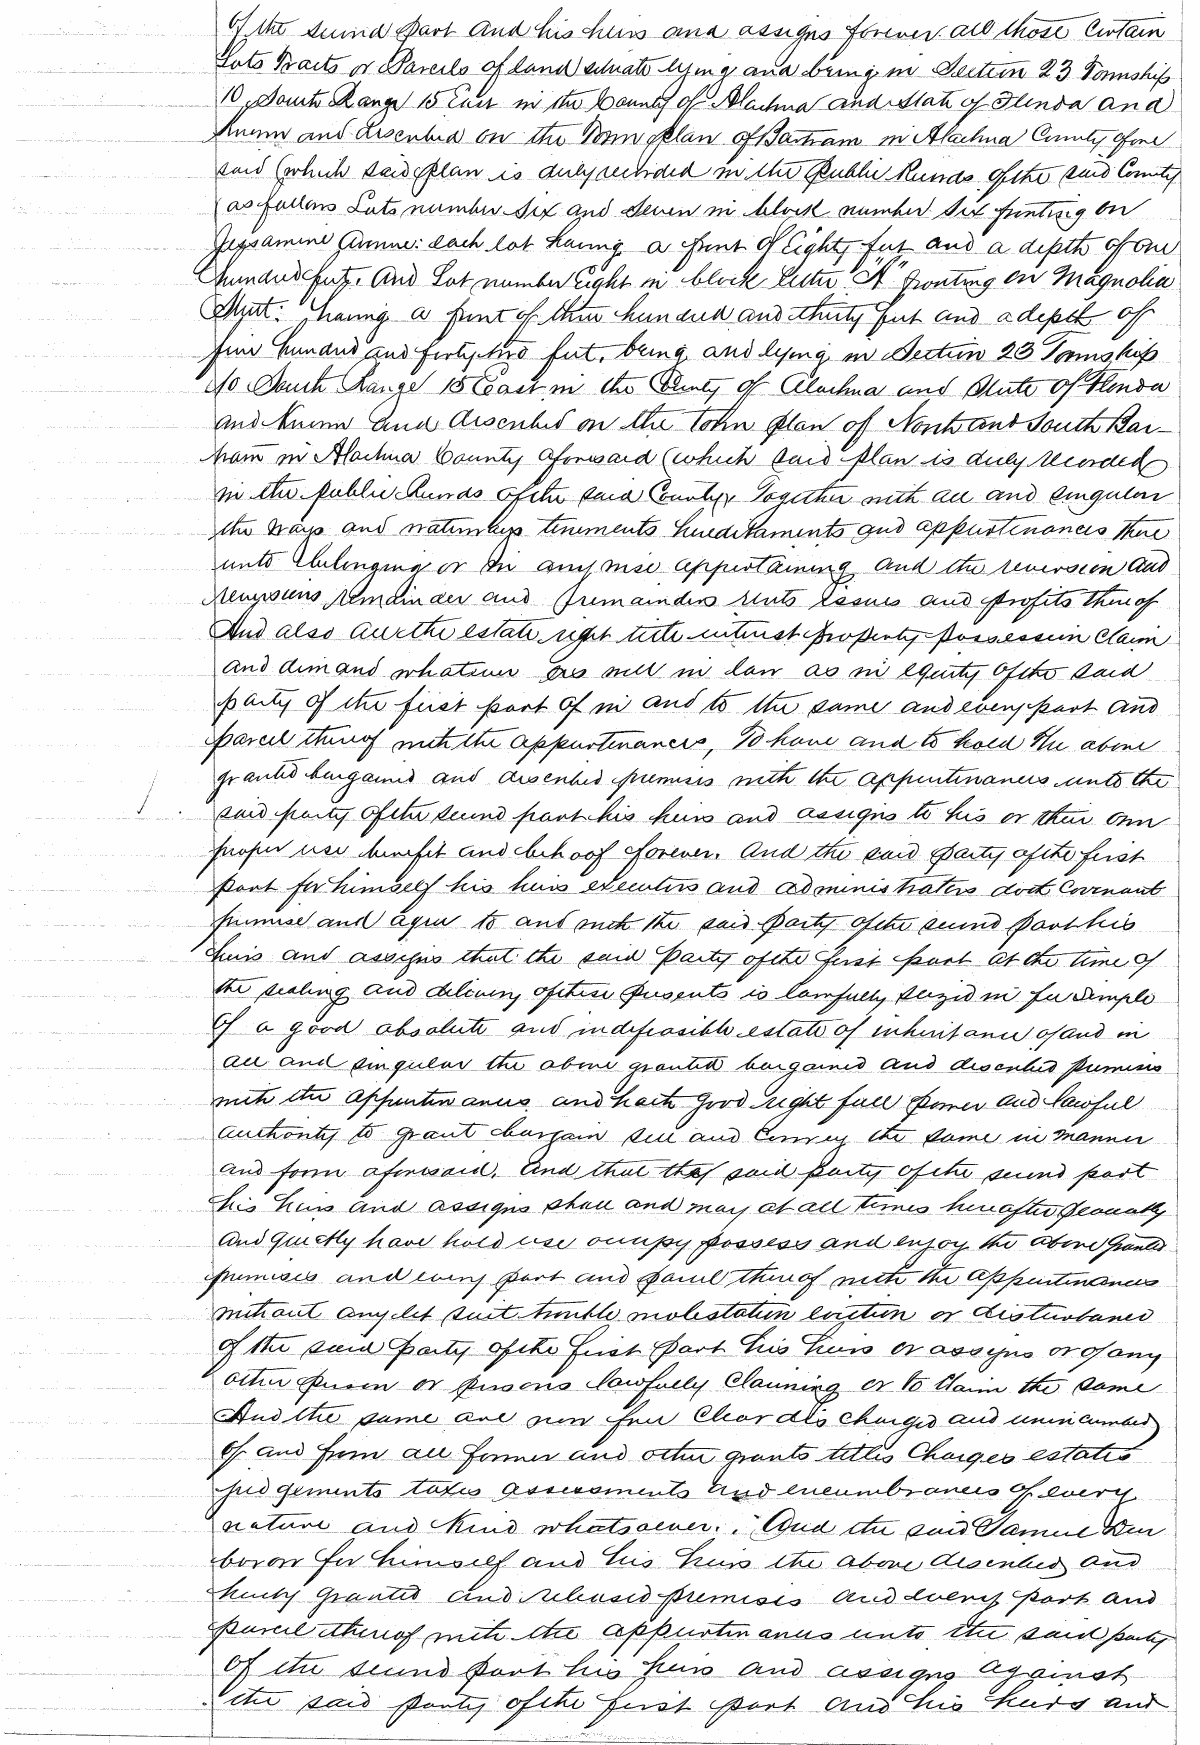 of the second part and his heirs and assigns forever all those Certain
Lots Tracts or Parcels of land situate lying and being in Section 23 Township
10, South Range 15 East in the County of Alachua and State of Florida and
known and described on the Town plan of Bartram in Alachua County afore
said (which said plan is duly recorded in the Public Records of the said County
as follows Lots number Six and Seven in block number Six fronting on
Jessamine Avenue: each lot having a front of Eighty feet and a depth of one
hundred feet. And Lot number Eight in block letter "A" fronting on Magnolia
Street: having a front of three hundred and thirty feet and a depth of
five hundred and forty two feet. being and lying in Section 23 Township
10 South Range 15 East in the County of Alachua and State of Florida
and known and described on the town plan of North and South Bar-
tram in Alachua County aforesaid (which said plan is duly recorded
in the public Records of the said County, Together with all and singular
the ways and waterways tenements hereditaments and appurtenances there
unto belonging or in any wise appertaining and the reversion and
reversions remainder and remainders rents issues and profits thereof
And also all the estate right title interest property possession Claim
and demand whatsoever as well in law as in equity of the said
party of the first part of in and to the same and every part and
parcel thereof with the appurtenances, To have and to hold the above
granted bargained and described premises with the appurtenances unto the
said party of the second part his heirs and assigns to his or their own
proper use benefit and behoof forever. And the said Party of the first
part for himself his heirs executors and administrators doth Covenant
promise and agree to and with the said party of the second part his
heirs and assigns that the said party of the first part at the time of
the sealing and delivery of these presents is lawfully seized in fee simple
of a good absolute and indefeasible estate of inheritance of and in
all and singular the above granted bargained and described premises
with the appurtenances and hath good right full power and lawful
authority to grant bargain sell and Convey the same in manner
and form aforesaid. And that the said party of the second part
his heirs and assigns shall and may at all times hereafter peaceably
and quietly have hold use occupy possess and enjoy the above granted
premises and every part and parcel thereof with the appurtenances
without any let suit trouble molestation eviction or disturbance
of the said Party of the first part his heirs or assigns or of any
other person or persons lawfully Claiming or to Claim the same
And the same are now free Clear discharged and unincumbered
of and from all former and other grants titles Charges estates
judgements taxes assessments and encumbrances of every
nature and kind whatsoever. And the said Samuel Den
borow for himself and his heirs the above described and
hereby granted and released premises and every part and
parcel thereof with the appurtenances unto the said party
of the second part his heirs and assigns against
the said party of the first part and his heirs and